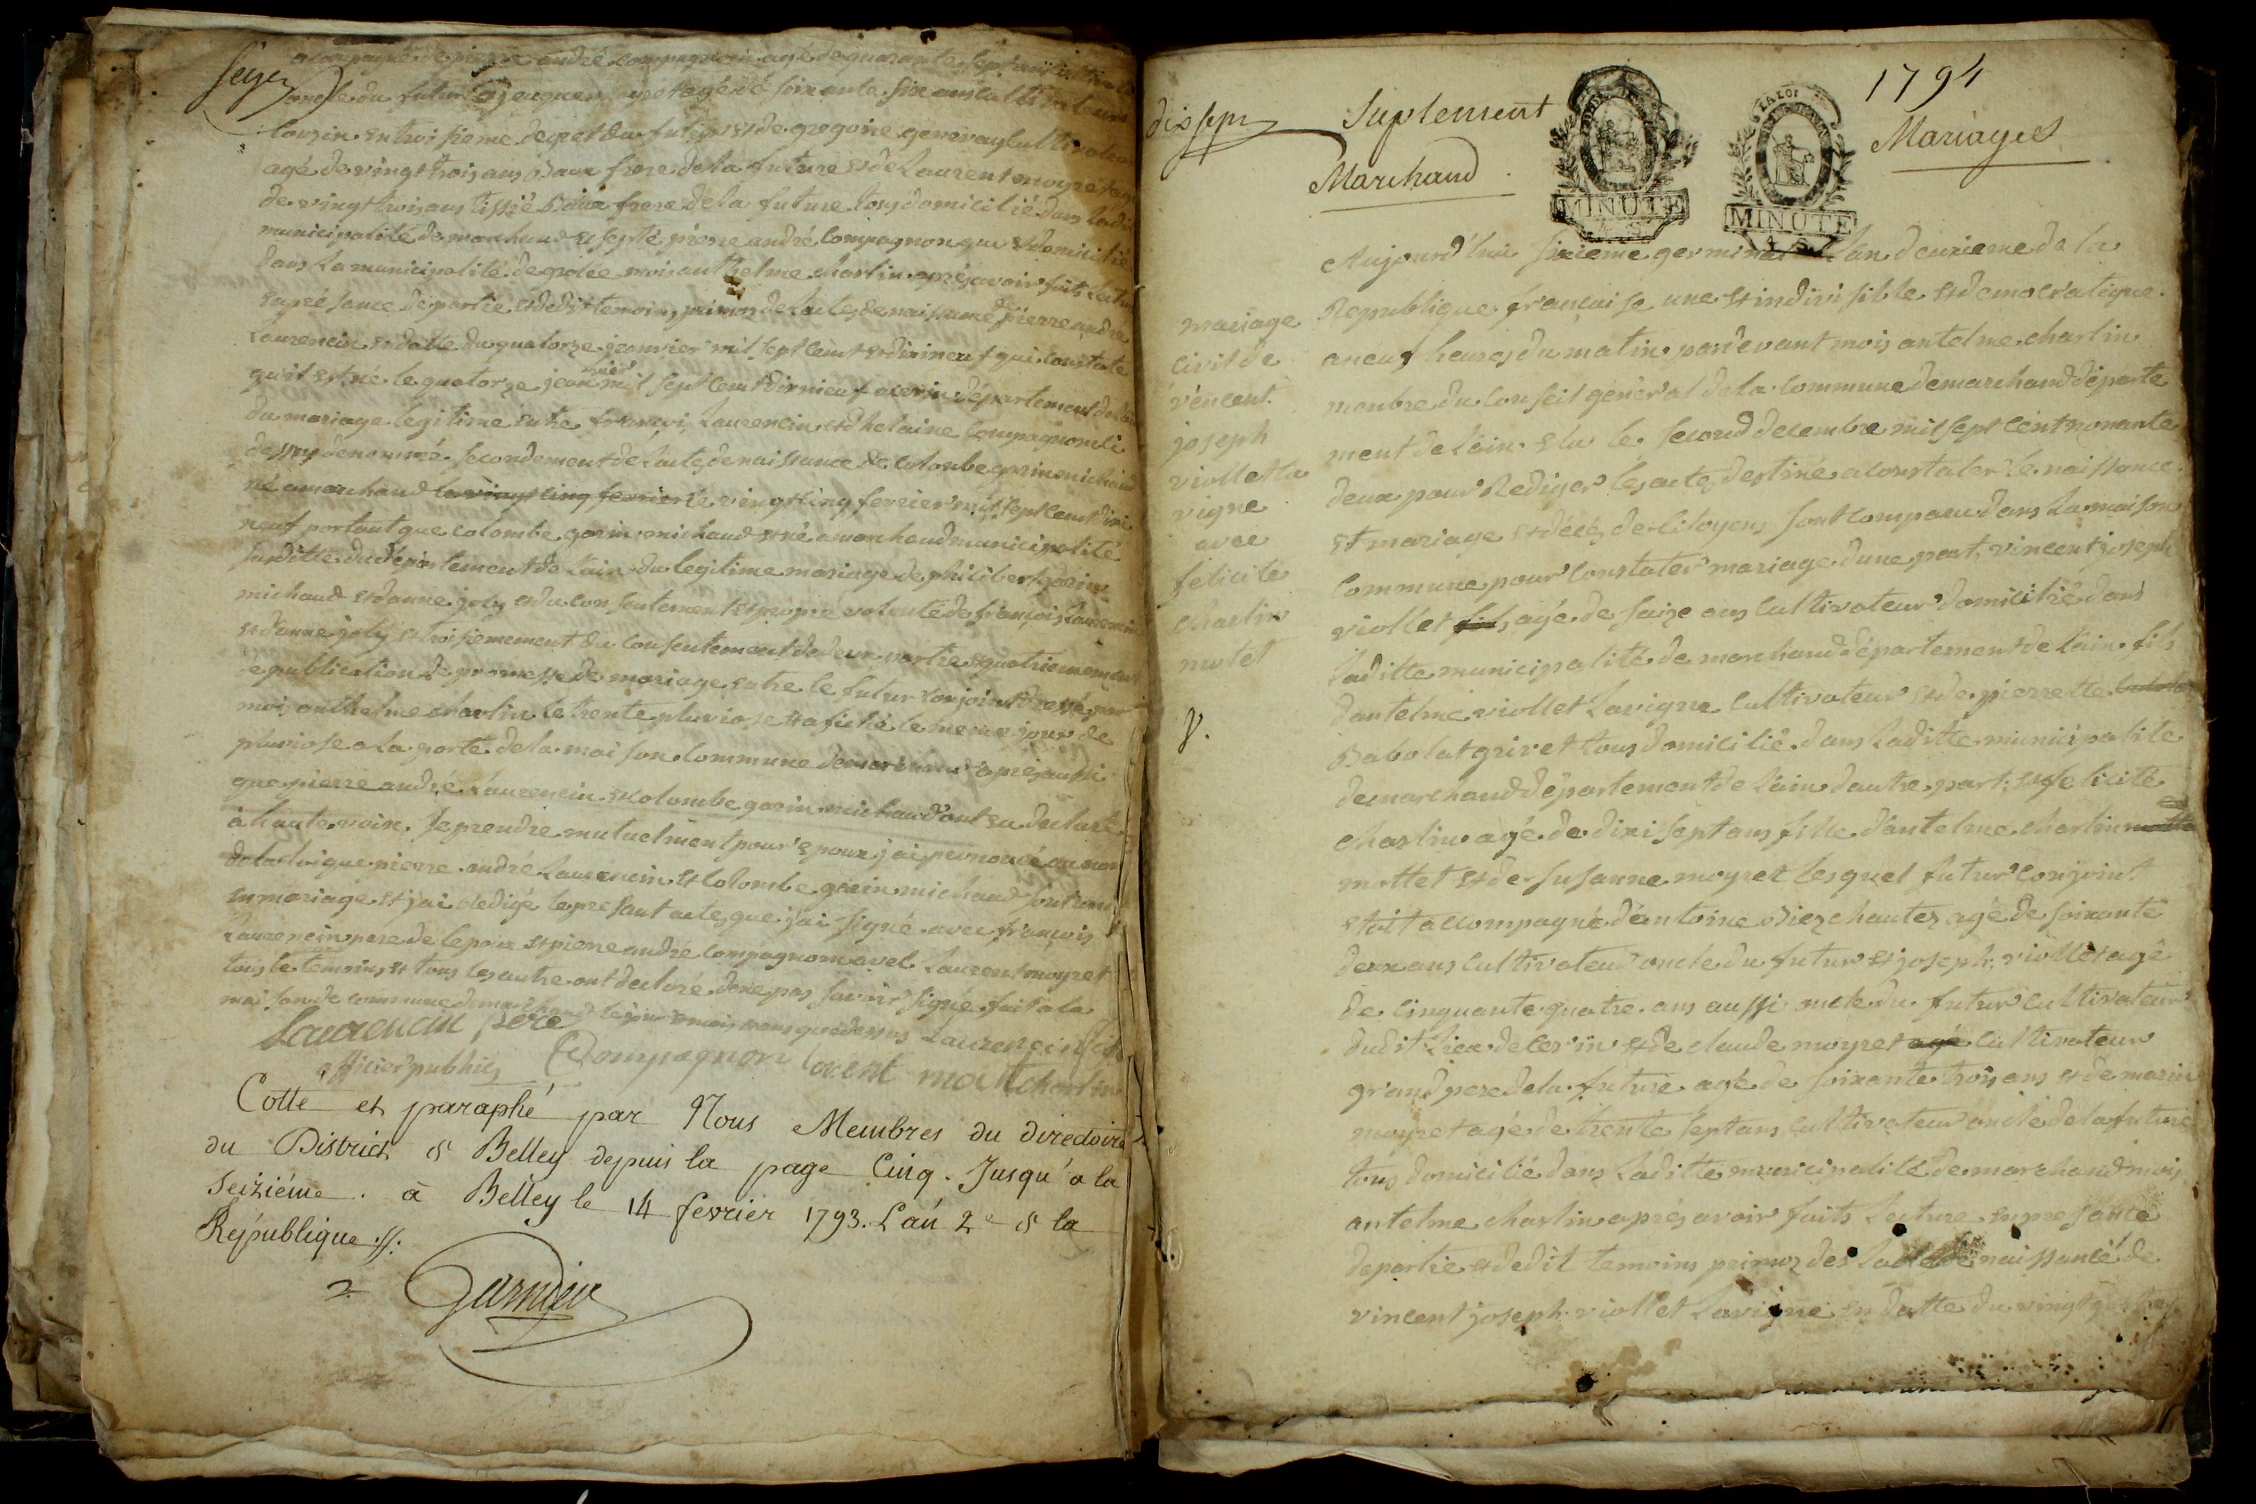 seize
accompagné de pierre andré compagnion agé de quarante sept ans cultivateur
oncle du futur et jacque moyret agé de soixante six ans cultivateur
cousin en troisieme degret du futur et de gregoire genevay cultivateur
agé de vingt trois ans baux frere de la future et de Laurent moyret agé
de vingt trois ans tissié baux frere de la future tous domicilié dans ladite
municipalité de marchand exsepté pierre andré Compagnon qui est domicilié
dans la municipalité de mois anthelme charlin aprés avoir fait lecture
en présance de partie et dedit temoins primo de l'acte de naissance pierre andré
Laurencin en datte du quatorze janvier mil sept cent et dixneuf qui constate
quil est né le quatorze jeanvier mil sept cent dix nieuf a cerin département de l'ain
du mariage legitime entre francoi Laurencin et dhelaine Compagnion ci
dessus dénommé. secondement de l'acte de naissance de Colombe gorin michaud
né a marchand la vingt cinq fevrier le vingt cinq fevrier mil sept cent dixe
neuf portant que colombe gorin michaud est né a marchand municipalité
susditte du département de l'ain du legitime mariage de philibert gorin
michaud et danne joly et du consentement et propre volonté de françois Laurencin
et danne joly et troisiemement du consentement de deux partie et quatriemement
publication de promesse de mariage entre le futur conjoint dressé par
moi anthelme charlin le trente pluviose et afiché le meme jour de
pluviose a la porte de la maison Commune de marchand aprés aussi
que pierre andré Laurencin et colombe gorin michaud ont eu declaré
a haute voix se prendre mutuelment pour epoux j'ai prononcé au nom
de la loi que pierre andré Laurencin et colombe gorin michaud sont uni
en mariage et j'ai rédigé le presant acte que j'ai signé avec françois
Laurencin pere de l'epoux et pierre andré compagnion avec Laurent moyret
tous le temoins et tous les autre ont declaré de ne pas savoir signé fait a la
maison de commune de marchand le jour mois et ans que dessus Laurencin
Laurencin père
officier public Compagnon Lorent charlin
Cotté et paraphé par Nous Membres du directoire
du District de Belley depuis la page Cinq. Jusqu'a la
Seiziéme. à Belley le 14 fevrier 1793. L'an 2e de la
République.
Garnier
dix sept
Suplement
Marchand
1794
Mariages
LA LOI
MINUTE
4 S
LA LOI
MINUTE
4 S
mariage
civil de
vincent
joseph
viollet la
vigne
avec
félicité
charlin
motet
Aujourd'hui sixieme germinal l'an deuxieme de la
Republique française une et indivisible et democratique
a neuf heures du matin pardevant mois antelme charlin
menbre du Conseil général de la Commune de marchand départe
ment de l'ain. elu le second decembre mil sept cent nonante
deux pour Rediger les actes destiné a constater le naissance
et mariage et décés de Citoyens sont comparu dans la maison
Commune pour Constater mariage d'une part, vincent joseph
viollet fils agé de saize ans cultivateur domicilié dans
laditte municipalité de marchand département de l'ain. fils
dantelme viollet Lavigne Cultivateur et de pierrette
Babolat grivet tous domicilié dans laditte municipalité
de marchand département de l'ain dautre part: et felicité
charlin agé de dixi sept ans fille d'antelme charlin
mottet et de Susanne moyret lesquel futur conjoint
etoit accompagné d'antoine Diez chantez agé de soixante
deux ans cultivateur oncle du futur et joseph viollet agé
de cinquante quatre ans aussi oncle du futur cultivateur
dudit lieu de cerin et de claude moyret agé Cultivateur
grand pere de la future agé de soixante trois ans et de marin
moyret agé de trente sept ans cultivateur oncle de la future
tous domicilié dans laditte municipalité de marchand mois
antelme charlin aprés avoir faits lecture en presance
de partie et dedit temoins primoz des lacte de naissance de
vincent joseph viollet Lavigne en datte du vingt quatre